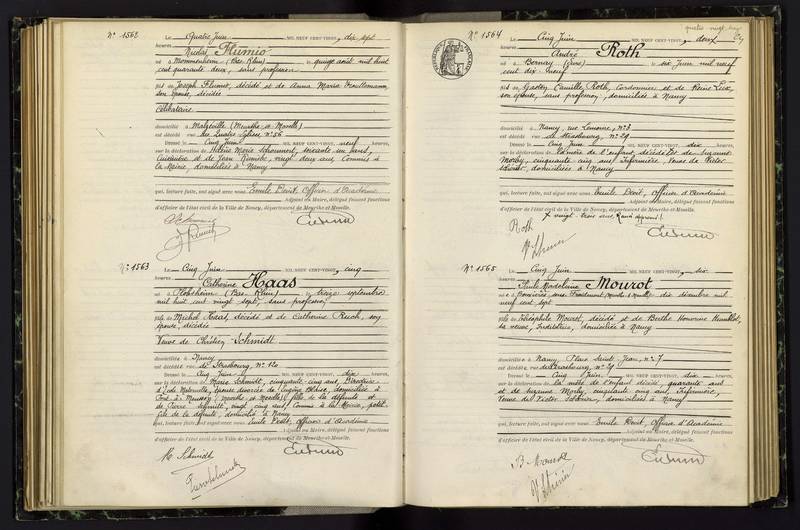 N° 1562
Le Quatre Juin MIL NEUF CENT-VINGT, dix sept
heures
Nicolas Flumio
né à Mommenheim (Bas-Rhin) le quinze août mil huit
cent quarante deux, sans profession
fils de Joseph Flumet, décédé et de Anna Marie
son épouse, décédée
Célibataire
domicilié à Malzéville (Meurthe-et-Moselle)
est décédé rue des Quatre Eglises, N° 56
Dressé le Cinq Juin MIL NEUF CENT-VINGT, neuf heures
sur la déclaration de Marie soixante un ans,
et de Jean vingt deux ans, Commis à
la Mairie, domiciliés à Nancy
qui, lecture faite, ont signé avec nous Emile Devit, Officier d'Académie
Adjoint au Maire, délégué faisant fonctions
d'officier de l'état civil de la Ville de Nancy, département de Meurthe-et-Moselle.
N° 1563
Le Cinq Juin MIL NEUF CENT-VINGT, cinq
heures
Catherine Haas
née à (Bas-Rhin) le treize septembre
mil huit cent vingt sept, sans profession
fille de Michel Haas, décédé et de Catherine Ruch, son
épouse, décédée
Veuve de Chrétien Schmidt
domiciliée à Nancy
est décédée rue de Strasbourg, N° 120
Dressé le Cinq Juin MIL NEUF CENT-VINGT, dix heures
sur la déclaration de Marie Schmidt, cinquante cinq ans, Directrice
d'Ecole Maternelle, épouse divorcée de Eugène domiciliée à
(Meurthe et Moselle) fille de la défunte et
de Pierre vingt cinq ans, Commis à la Mairie, petit
fils de la défunte, domicilié à Nancy
qui, lecture faite, ont signé avec nous Emile Devit, Officier d'Académie
Adjoint au Maire, délégué faisant fonctions
d'officier de l'état civil de la Ville de Nancy, département de Meurthe-et-Moselle.
M Schmidt
N° 1564
Le Cinq Juin MIL NEUF CENT-VINGT, deux
heures
André Roth
né à Bernay (Eure) le six Juin mil neuf
cent dix-neuf
fils de Gaston Camille Roth, cordonnier et de Reine Lux,
son épouse, sans profession, domiciliés à Nancy
domicilié à Nancy, rue Lemoine, N° 3
est décédé rue de Strasbourg, N° 29
Dressé le Cinq Juin MIL NEUF CENT-VINGT, dix heures
sur la déclaration de de l'enfant décédé et de Suzanne
Morby, cinquante cinq ans, Infirmière, Veuve de Victor
domiciliés à Nancy
qui, lecture faite, ont signé avec nous Emile Devit, Officier d'Académie
Adjoint au Maire, délégué faisant fonctions
d'officier de l'état civil de la Ville de Nancy, département de Meurthe-et-Moselle.
x vingt-trois ans
Roth
N° 1565
Le Cinq Juin MIL NEUF CENT-VINGT, six
heures
Paule Madeleine Mourot
née à (Meurthe et Moselle) dix décembre mil
neuf cent sept
fille de Théophile Mourot, décédé et de Berthe Honorine Humblot,
sa veuve, Institutrice, domiciliée à Nancy
domiciliée à Nancy, Place Saint Jean, N° 7
est décédée rue de Strasbourg, N° 29
Dressé le Cinq Juin MIL NEUF CENT-VINGT, dix heures
sur la déclaration de la mère de l'enfant décédé, quarante ans
et de Suzanne Morby, cinquante cinq ans, Infirmière,
Veuve de Victor domiciliées à Nancy
qui, lecture faite, ont signé avec nous Emile Devit, Officier d'Académie
Adjoint au Maire, délégué faisant fonctions
d'officier de l'état civil de la Ville de Nancy, département de Meurthe-et-Moselle.
B Mourot